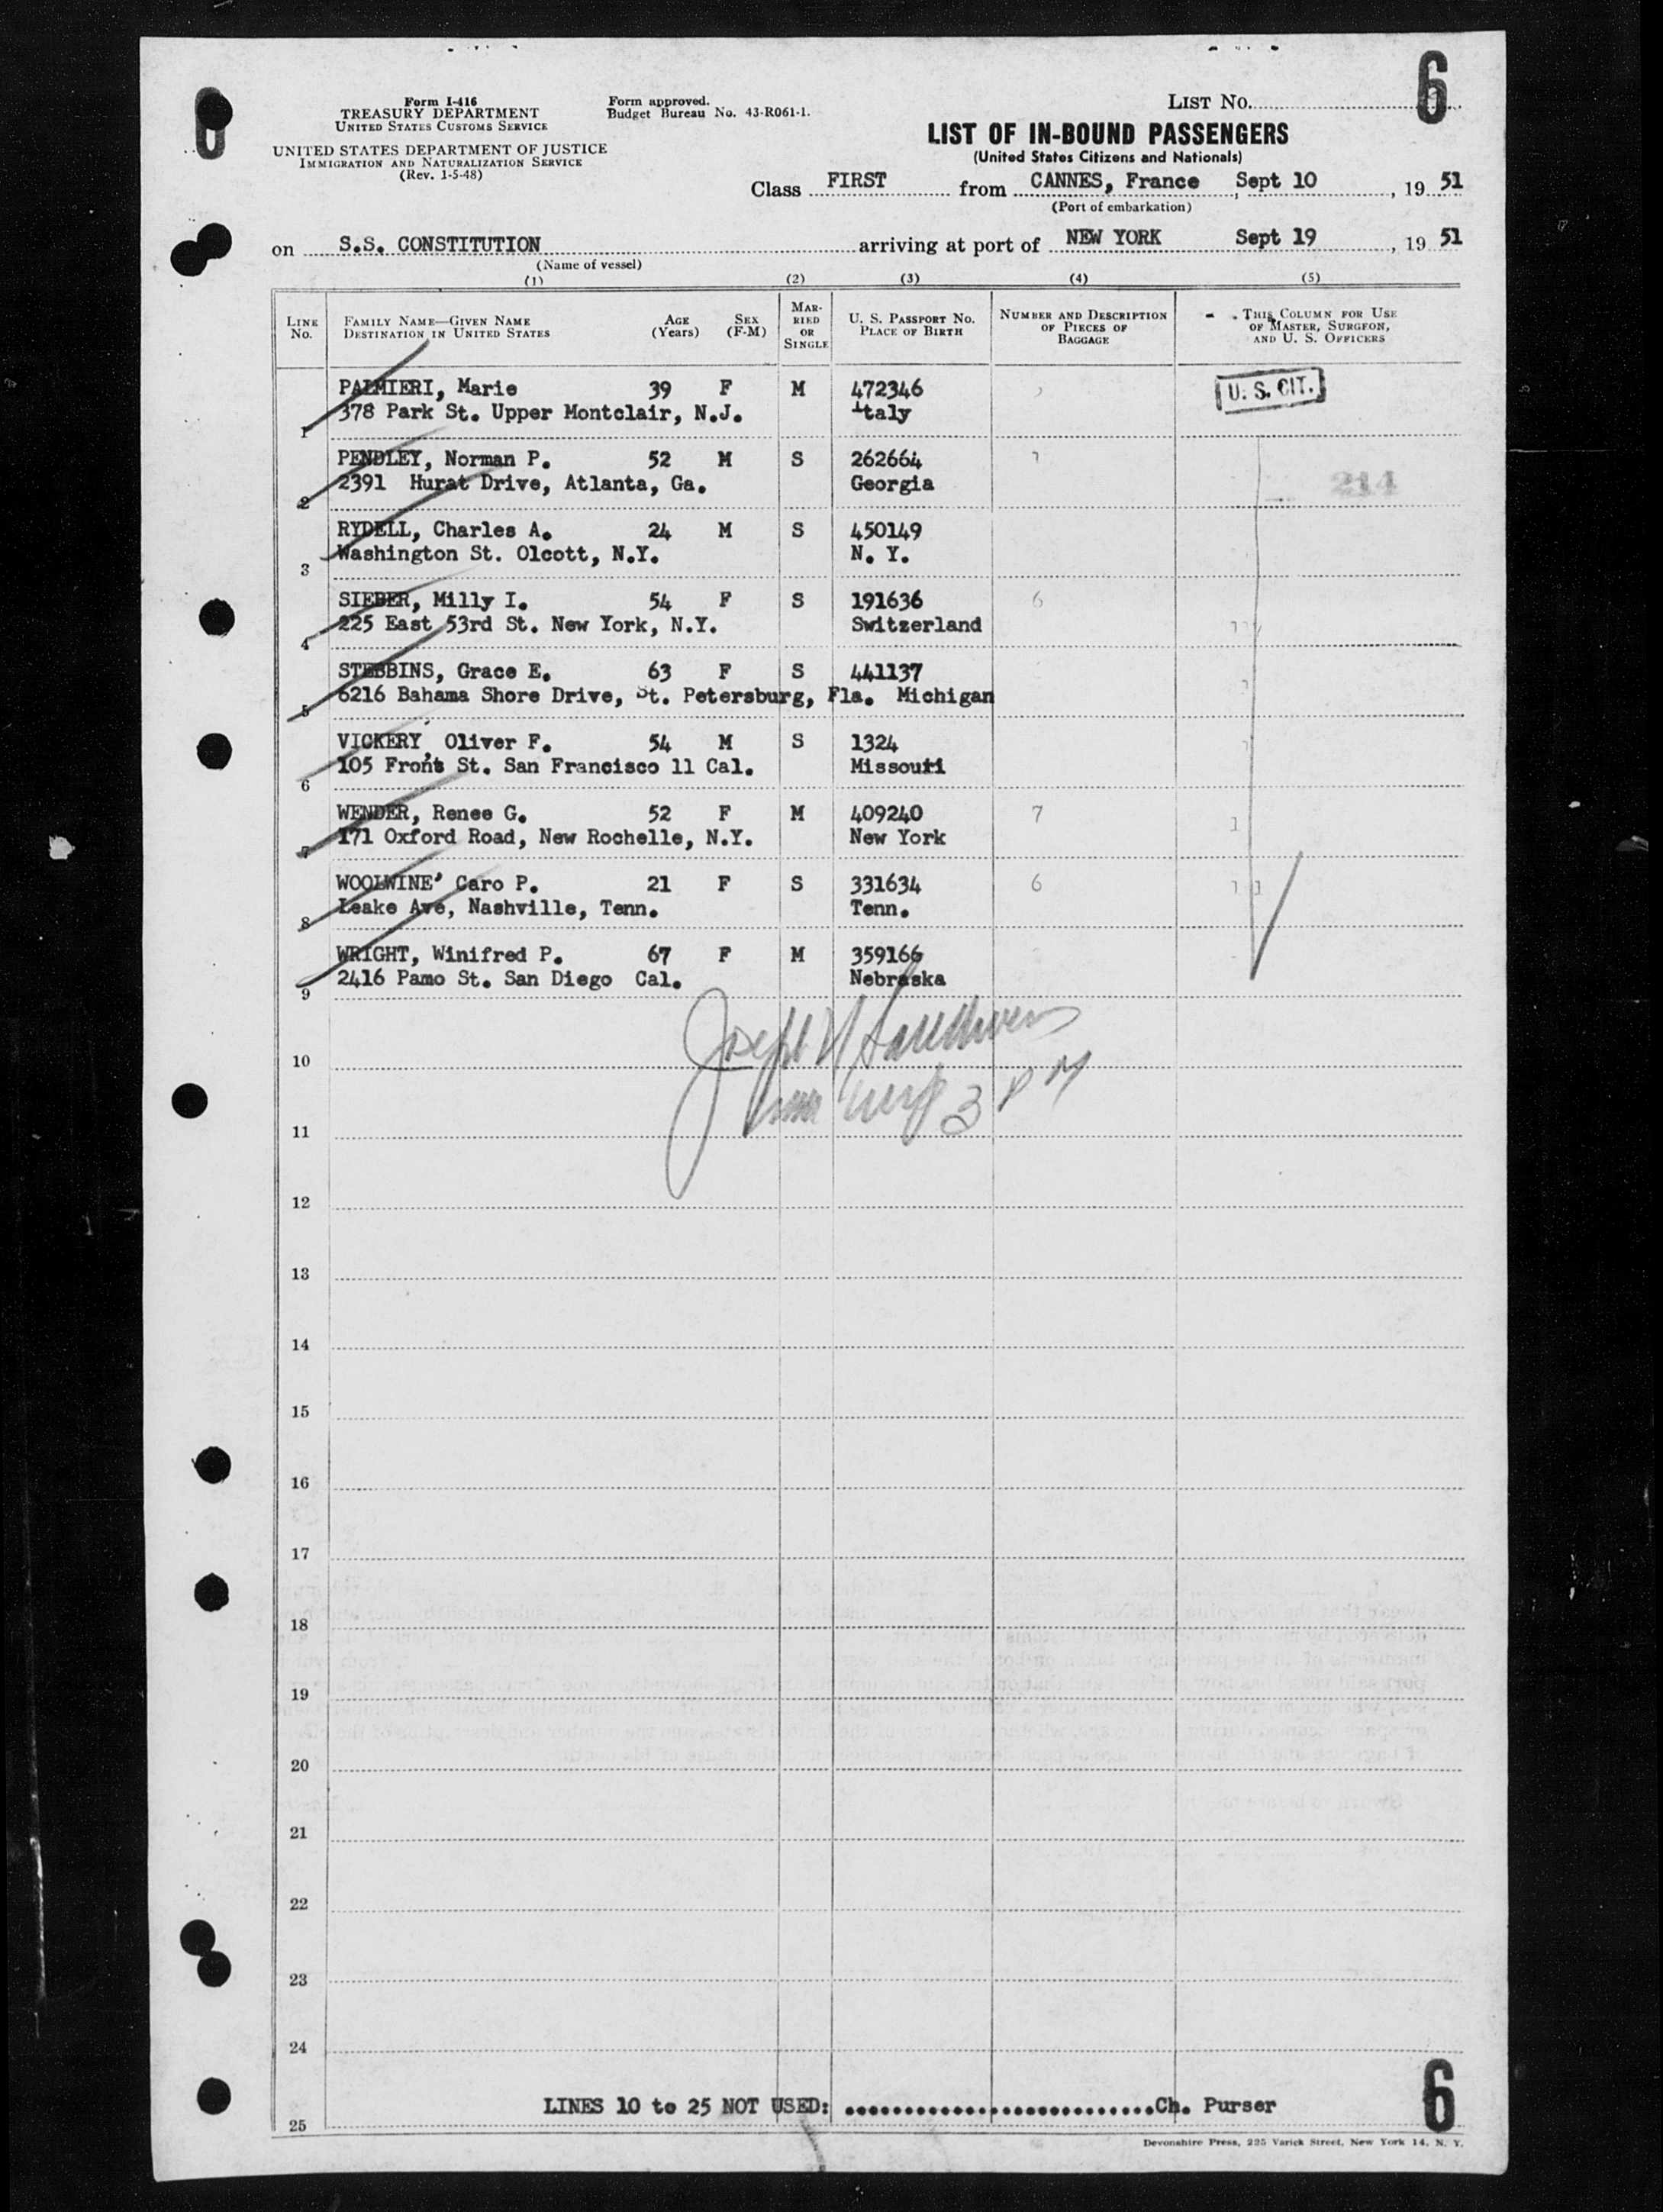 6
Form I-416
TREASURY DEPARTMENT
UNITED STATES CUSTOMS SERVICE
UNITED STATES DEPARTMENT OF JUSTICE
IMMIGRATION AND NATURALIZATION SERVICE
(Rev. 1-5-48)
Form approved.
Budget Bureau No. 43-R061-1.
LIST No. 6
LIST OF IN-BOUND PASSENGERS
(United States Citizens and Nationals)
Class FIRST from CANNES, France Sept 10, 19 51
(Port of embarkation)
on S.S. CONSTITUTION arriving at port of NEW YORK Sept 19, 19 51
(Name of vessel)
(1) (2) (3) (4) (5)
LINE No. FAMILY NAME—GIVEN NAME DESTINATION IN UNITED STATES AGE (Years) SEX (F-M) MARRIED OR SINGLE U. S. PASSPORT NO. PLACE OF BIRTH NUMBER AND DESCRIPTION OF PIECES OF BAGGAGE THIS COLUMN FOR USE OF MASTER, SURGEON, AND U. S. OFFICERS
PALMIERI, Marie 39 F M 472346 U. S. CIT.
1 378 Park St. Upper Montclair, N.J. Italy
PENDLEY, Norman P. 52 M S 262664
2 2391 Hurst Drive, Atlanta, Ga. Georgia 214
RYDELL, Charles A. 24 M S 450149
3 Washington St. Olcott, N.Y. N. Y.
SIEBER, Milly I. 54 F S 191636 6
4 225 East 53rd St. New York, N.Y. Switzerland
STEBBINS, Grace E. 63 F S 441137
5 6216 Bahama Shore Drive, St. Petersburg, Fla. Michigan
VICKERY, Oliver F. 54 M S 1324
6 105 Front St. San Francisco 11 Cal. Missouri
WENDER, Renee G. 52 F M 409240 7
7 171 Oxford Road, New Rochelle, N.Y. New York
WOOLWINE' Caro P. 21 F S 331634 6
8 Leake Ave, Nashville, Tenn. Tenn.
WRIGHT, Winifred P. 67 F M 359166
9 2416 Pamo St. San Diego Cal. Nebraska
Joseph
10
3 PM
11
12
13
14
15
16
17
18
19
20
21
22
23
24
LINES 10 to 25 NOT USED: ..........................Ch. Purser
25
6
Devonshire Press, 225 Varick Street, New York 14, N. Y.